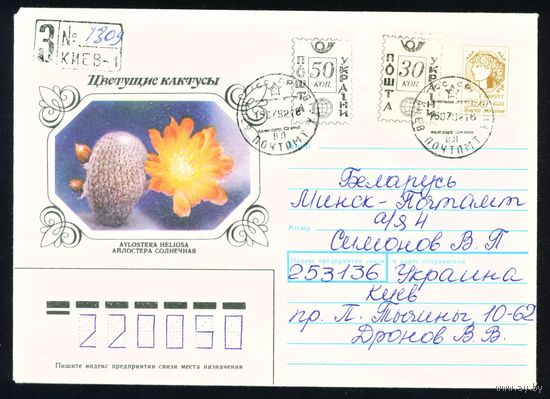 З № 1309
КИЕВ-1
Цветущие кактусы
ПОШТА УКРАЇНИ
50 КОП.
ПОШТА УКРАЇНИ
30 КОП.
ПОЧТАМТ
ПОЧТАМТ
Беларусь
Минск-Почтамт
Кому а/я 4
Симонов В.П
AYLOSTERA HELIOSA
АЙЛОСТЕРА СОЛНЕЧНАЯ
Индекс предприятия связи и адрес отправителя
253136 Украина
Киев
пр. П. Тычины 10-62
Дронов В.В.
220050
Пишите индекс предприятия связи места назначения